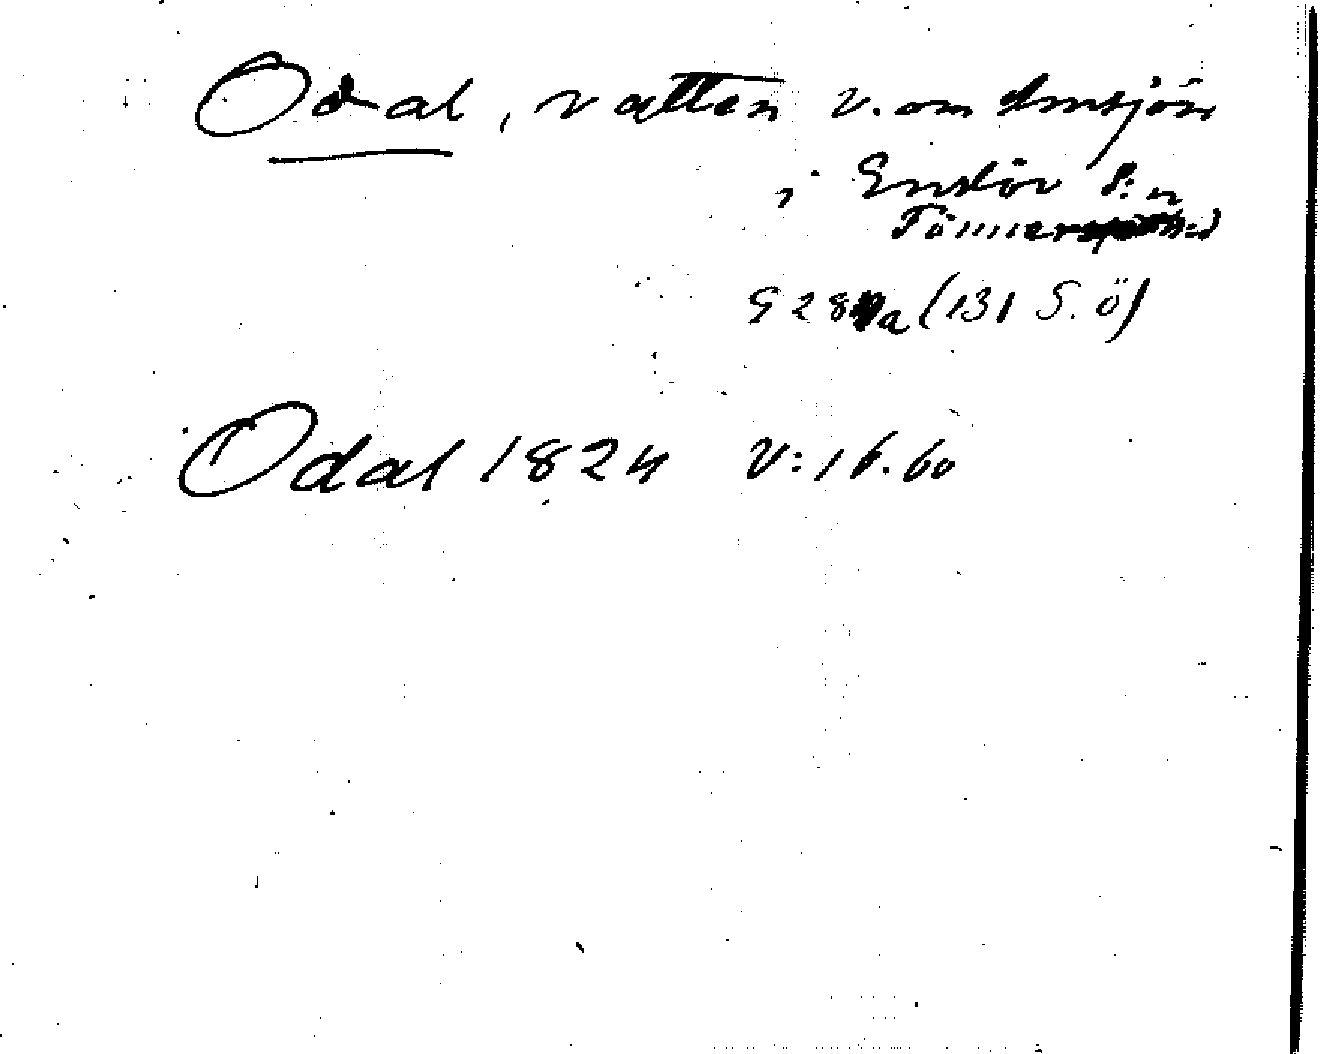 Odal, vatten v. om Amsjön
i Enslöv s:n
Tönners h:d
G 28 a (131 S. ö)
Odal 1824 V: 16. 60